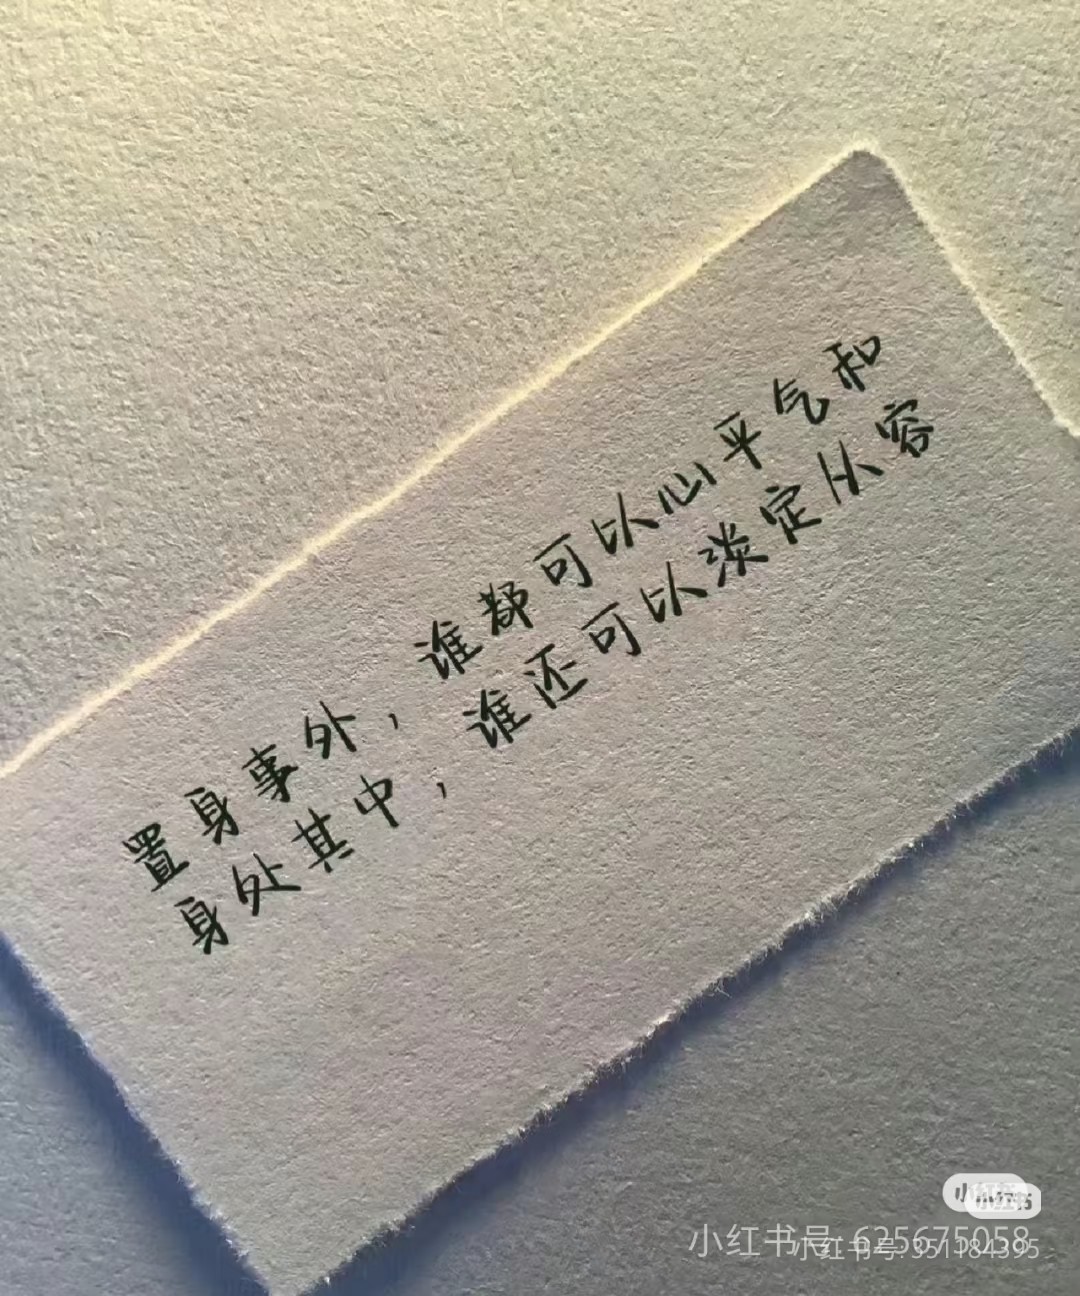 置身事外，谁都可以心平气和
身处其中，谁还可以淡定从容
小红书
小红书号: 625675058
小红书号: 351184395